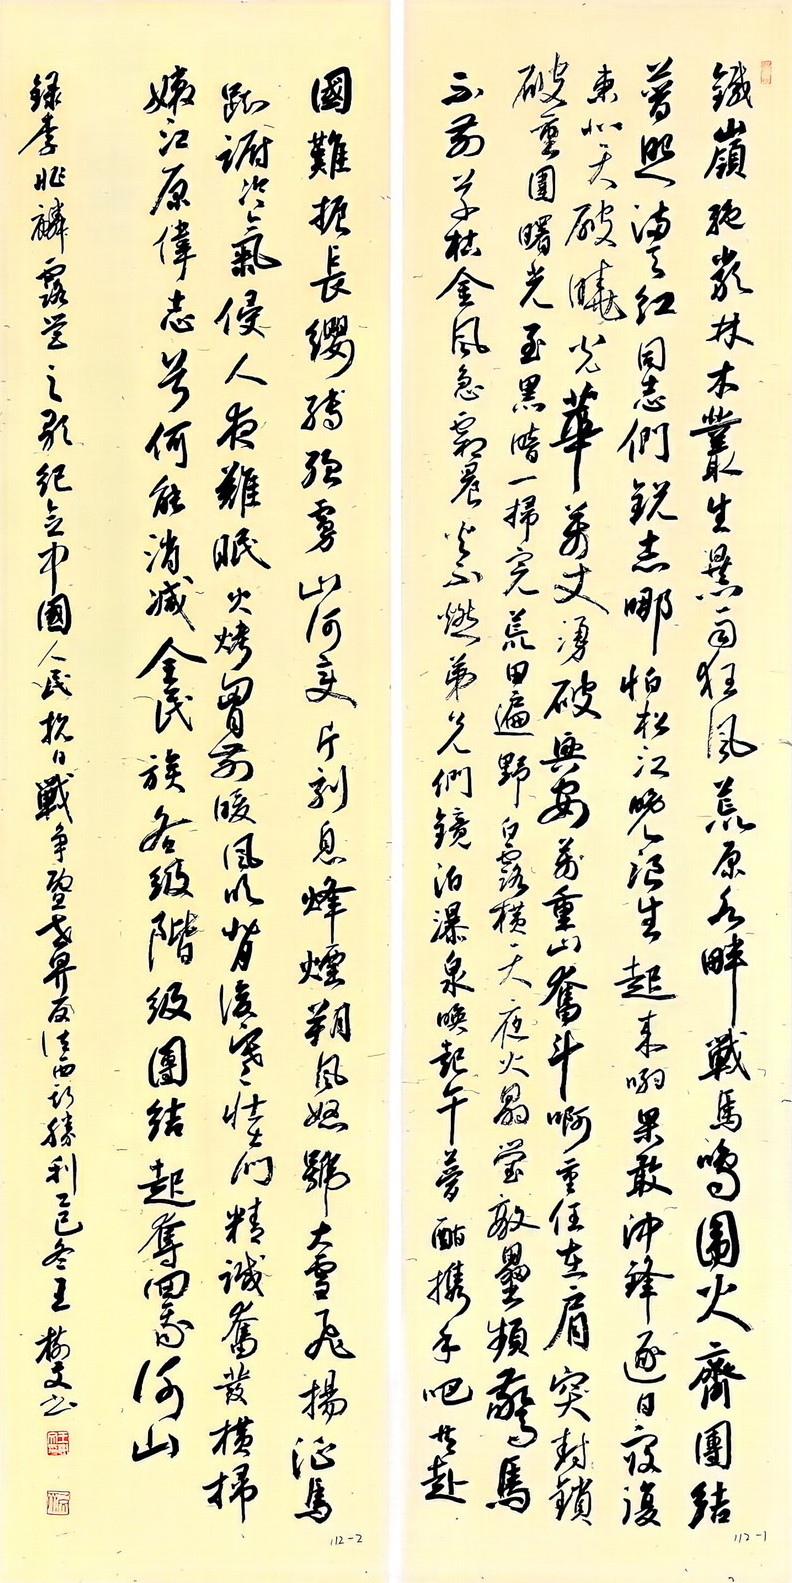 鐵嶺絕巖林木叢生暴雨狂風荒原水畔戰馬鳴圍火齊團結
普照滿天紅同志們銳志哪怕松江晚浪生起來喲果敢沖鋒逐日寇復
東北天破曉光華萬丈湧破興安萬重山奮斗啊重任在肩突封鎖
破重圍曙光至黑暗一掃完荒田遍野白露橫天夜火晶瑩敵壘頻驚馬
不前草枯金風急霜晨火不燃弟兄們鏡泊瀑泉喚起午夢酣攜手吧共赴
國難振長纓縛強虜山河變片刻息烽煙朔風怒號大雪飛揚征馬
踟躕冷氣侵人夜難眠火烤胸前暖風吹背後寒壯士們精誠奮發橫掃
嫩江原偉志兮何能消滅全民族各級階級團結起奪回我河山
錄李兆麟露營之歌紀念中國人民抗日戰爭暨世界反法西斯勝利己巳冬王樹文書
112-1
112-2